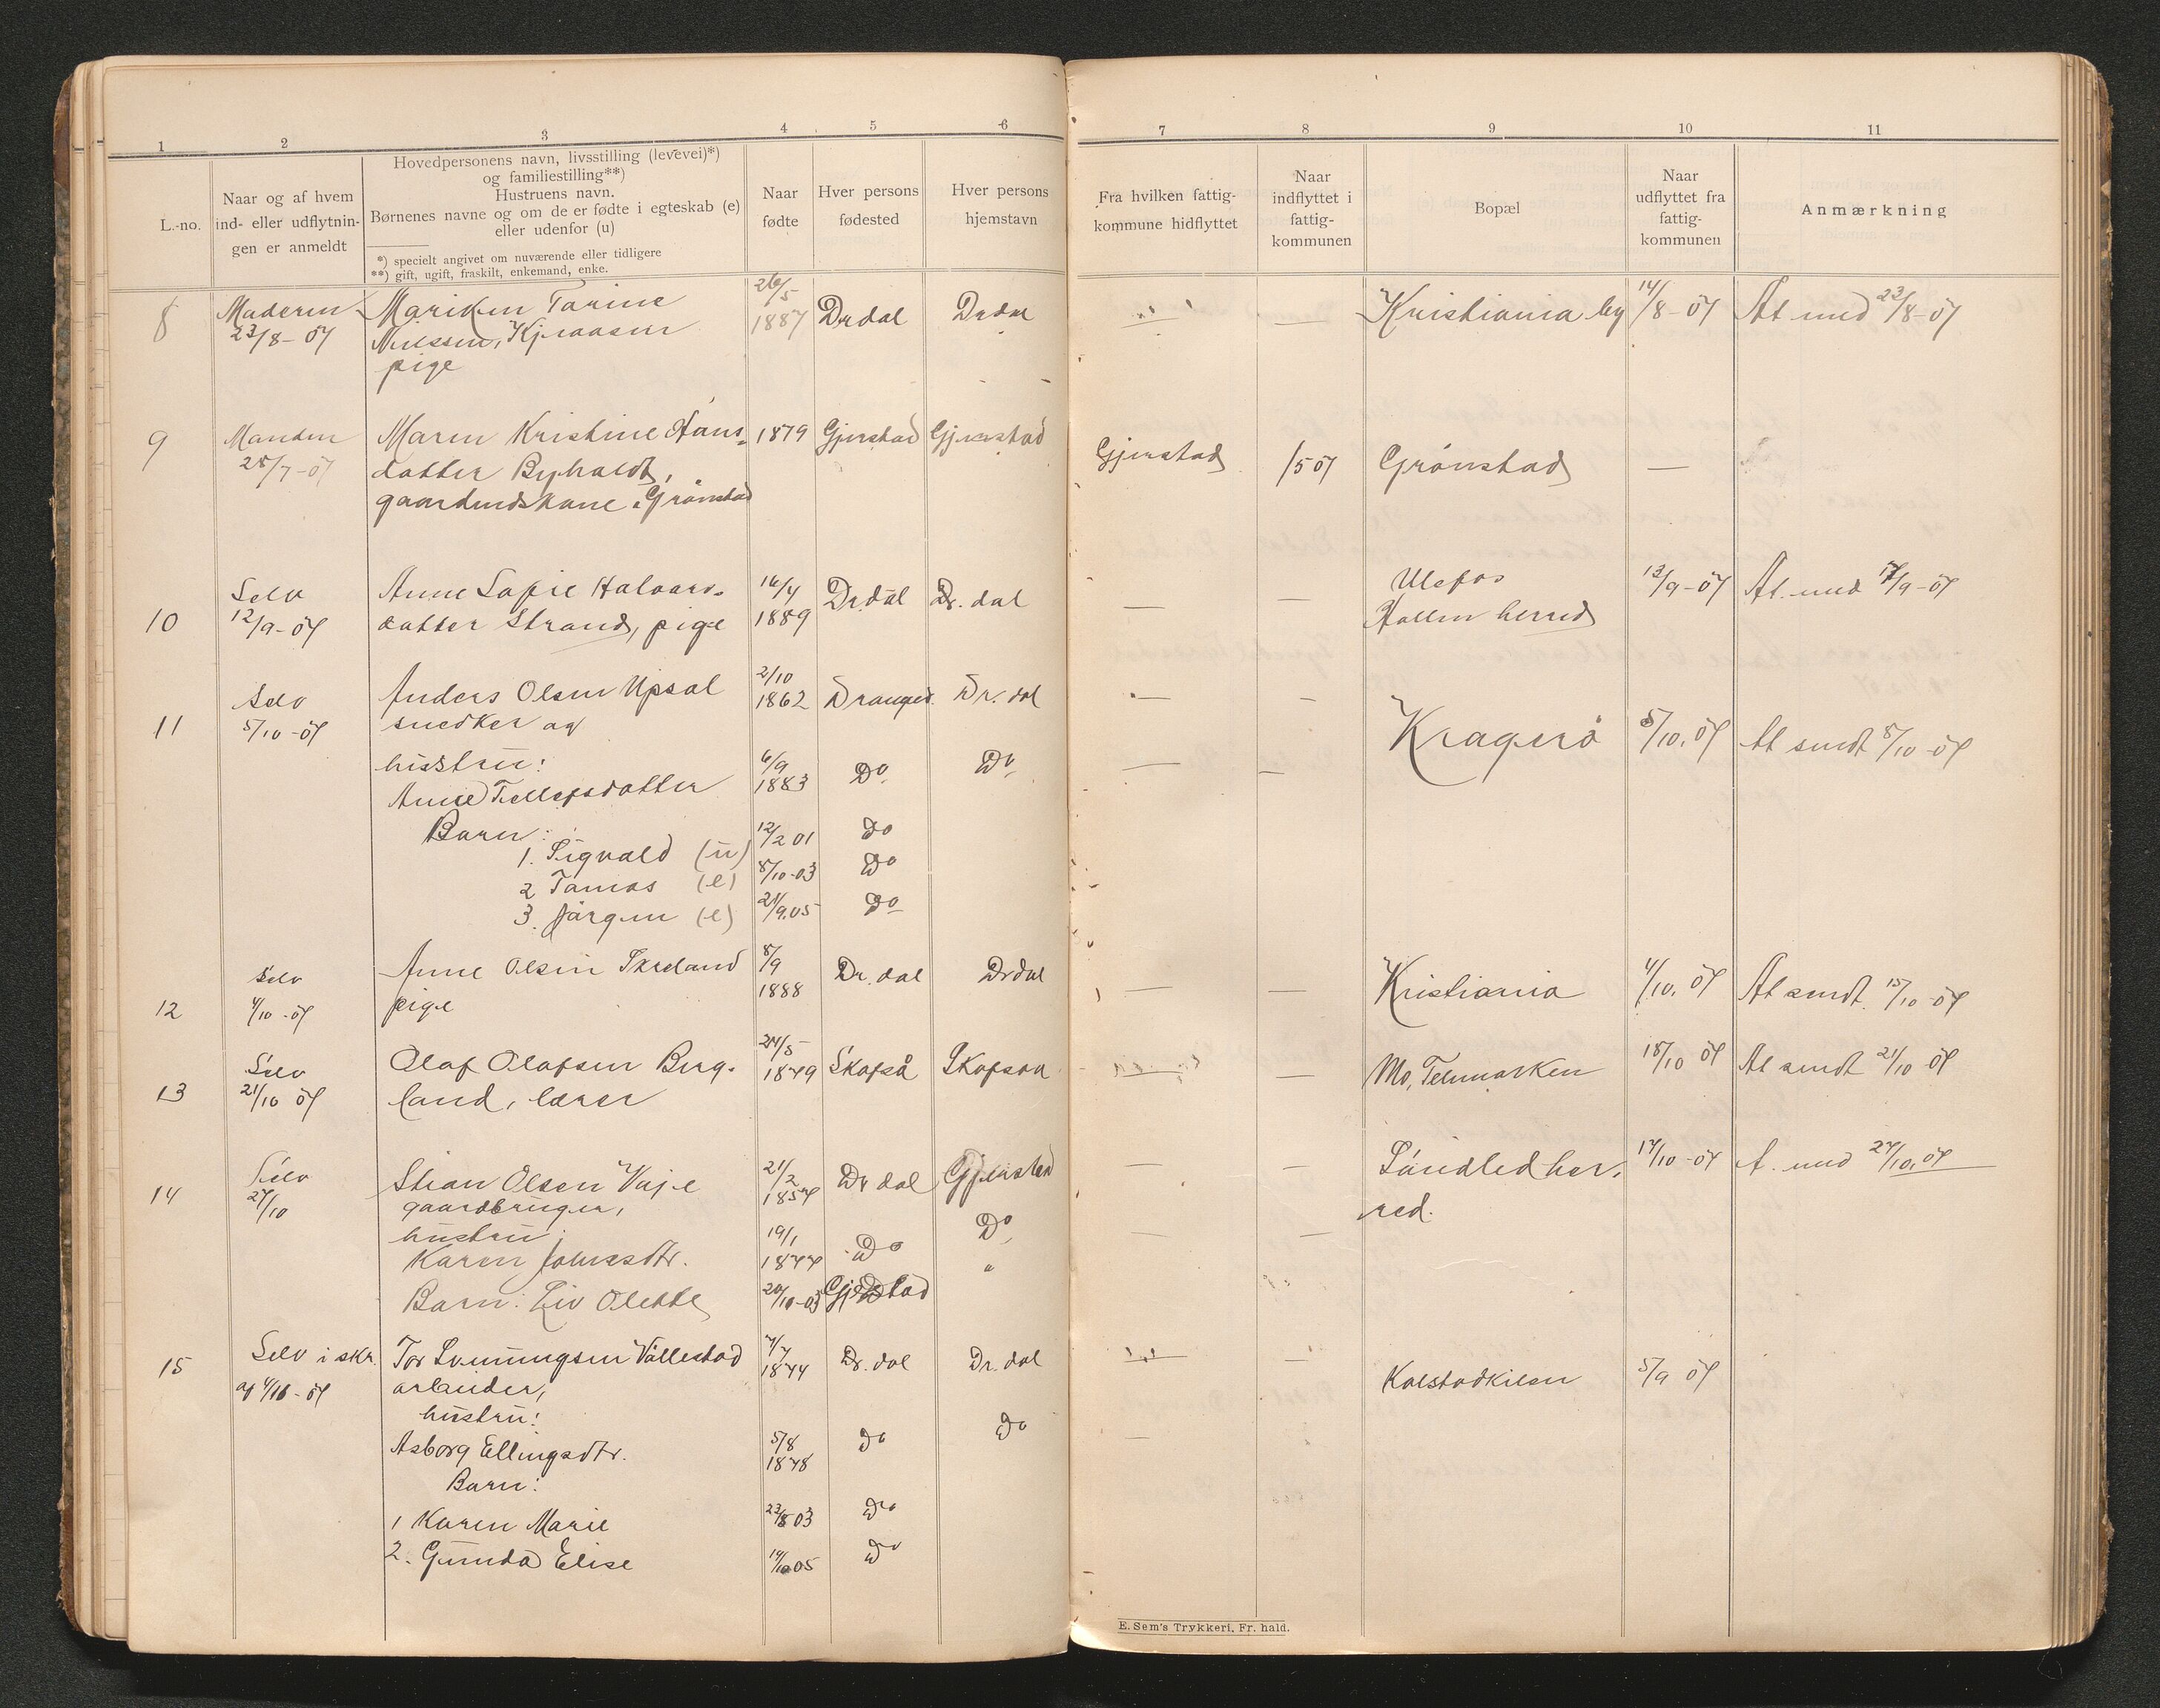 1 2 3 4 5 6 7 8 9 10 11
L.-no.
Naar og af hvem
ind- eller udflytnin-
gen er anmeldt
Hovedpersonens navn, livsstilling (levevei)*)
og familiestilling**)
Hustruens navn.
Børnenes navne og om de er fødte i egteskab (e)
eller udenfor (u)
*) specielt angivet om nuværende eller tidligere
**) gift, ugift, fraskilt, enkemand, enke.
Naar
fødte
Hver persons
fødested
Hver persons
hjemstavn
Fra hvilken fattig-
kommune hidflyttet
Naar
indflyttet i
fattig-
kommunen
Bopæl
Naar
udflyttet fra
fattig-
kommunen
Anmærkning
8 Maderen Mariken Tarine 26/5 Drdal Drdal — — Kristiania by 14/8-07 At med 23/8-07
23/8-07 Nielssen, 1887
pige
9 Manden Maren Kristine Hans- 1879 Gjerstad Gjerstad Gjerstad 1507 Grønstad —
28/7-07 datter Byholdt,
gaardmdskone, Grønstad
Selv Anne Sofie Halvors- 16/4 Dr.dal Dr. dal — — Ulefos 12/9-07 At. med 17/9-07
10 12/9-07 datter Strand, pige 1889 Hollen herred
Selv Anders Olsen Upsal 2/10 1862 Dranged. Dr. dal — —
11 5/10-07 snedker og Kragerø 5/10.07 At sendt 8/10-07
hustru: 6/9 Do Do — —
Anne Tellefsdatter 1883
Barn: 12/2 01 Do
1. Sigvald (u)
2 Tomas (e) 8/10-03 Do
3. Jørgen (e) 21/9.05 Do
Selv Anne Olsen Skreland 8/9 Dr. dal Drdal — — Kristiania 4/10. 07 At sendt. 15/10-07
12 4/10-07 pige 1888
Selv Olaf Olafsen Berg- 24/5 1879 Skafså Skafsaa — — Mo, Telemarken 18/10 07 At sendt 21/10 07
13 21/10 07 land, lærer
Selv Stian Olsen Vaje 21/2 Dr dal Gjerstad — — Søndledher- 17/10-07 A. med 27/10.07
14 27/10 gaardbruger, 1857 red.
hustru 19/1 Do Do — —
Karen Johnsdtr. 1877 "
Barn: Liv Olette 20/10-03 Gjerstad
15 Selv i skr. Tor Svenungsen Vållestad 7/7 1874 Dr. dal Dr. dal — — Kolstadkilen 5/9 07
af 4/10-07 arbeider,
hustru:
Asborg Ellingsdtr. 5/8 1878 Do Do —
Barn:
1 Karen Marie 23/8 03 Do
2. Gunda Elise 19/10 05 Do
E. Sem's Trykkeri, Fr. hald.